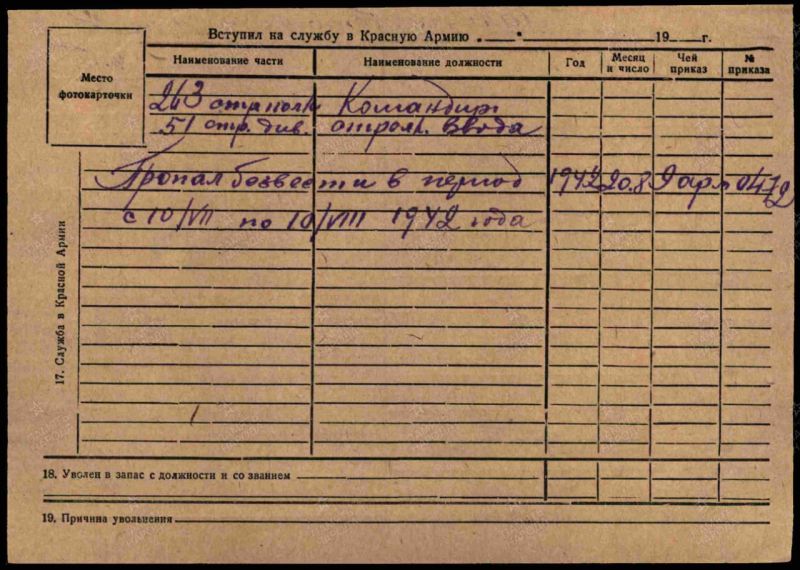 Вступил на службу в Красную Армию „ “ 19 г.
Место фотокарточки
Наименование части Наименование должности Год Месяц и число Чей приказ № приказа
213 стр полк Командир
51 стр. див. стрелк. взвода
Пропал безвести в период 1942 20.8 9 арм 0472
с 10/VII по 10/VIII 1942 года
17. Служба в Красной Армии
18. Уволен в запас с должности и со званием
19. Причина увольнения